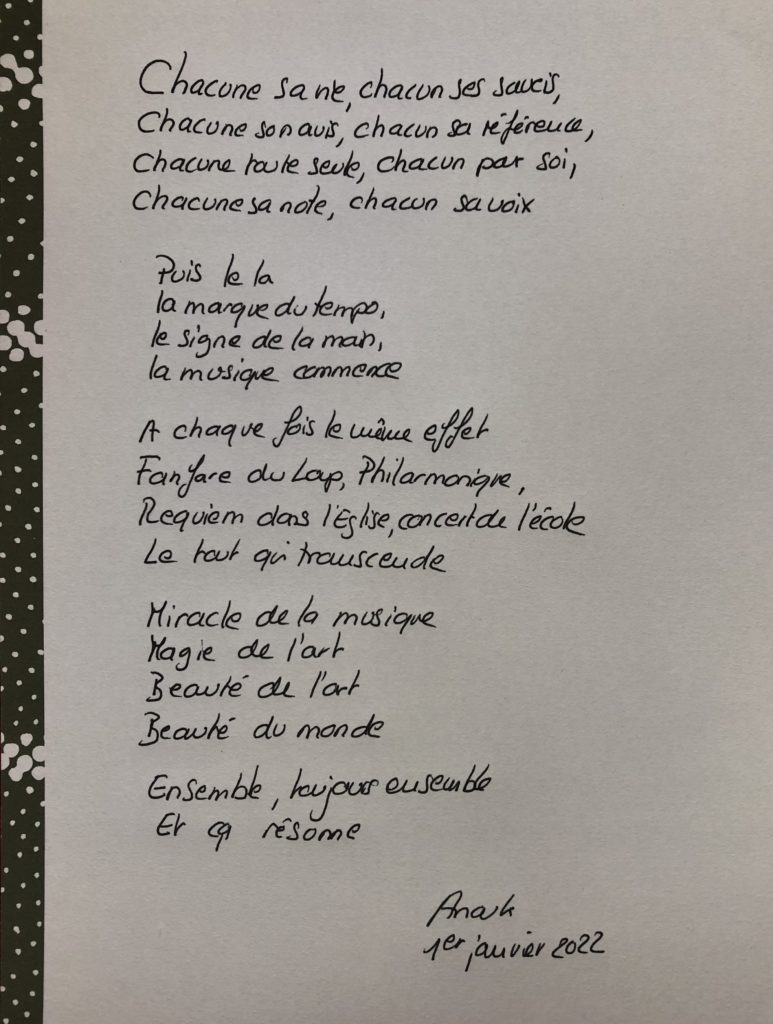 Chacune sa vie, chacun ses soucis,
Chacune son avis, chacun sa référence,
Chacune toute seule, chacun par soi,
Chacune sa note, chacun sa voix
Puis le la
la marque du tempo,
le signe de la main,
la musique commence
A chaque fois le même effet
Fanfare du Loup, Philarmonique,
Requiem dans l'Eglise, concert de l'école
Le tout qui transcende
Miracle de la musique
Magie de l'art
Beauté de l'art
Beauté du monde
Ensemble, toujours ensemble
Et ça résonne
1er janvier 2022